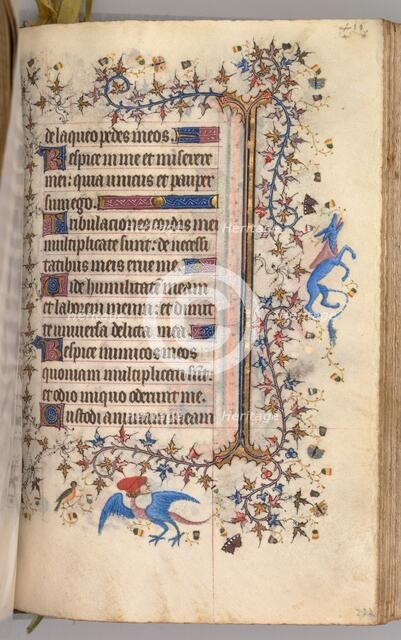 de laqueo pedes meos.
Respice in me et miserere
mei: quia unicus et pauper
sum ego.
Tribulaciones cordis mei
multiplicate sunt: de necessi
tatibus meis erue me.
Vide humilitatem meam
et laborem meum: et dimitte
universa delicta mea.
Respice inimicos meos
quoniam multiplicati sunt:
et odio iniquo oderunt me.
Custodi animam meam
Heritage
Heritage
Heritage
Heritage